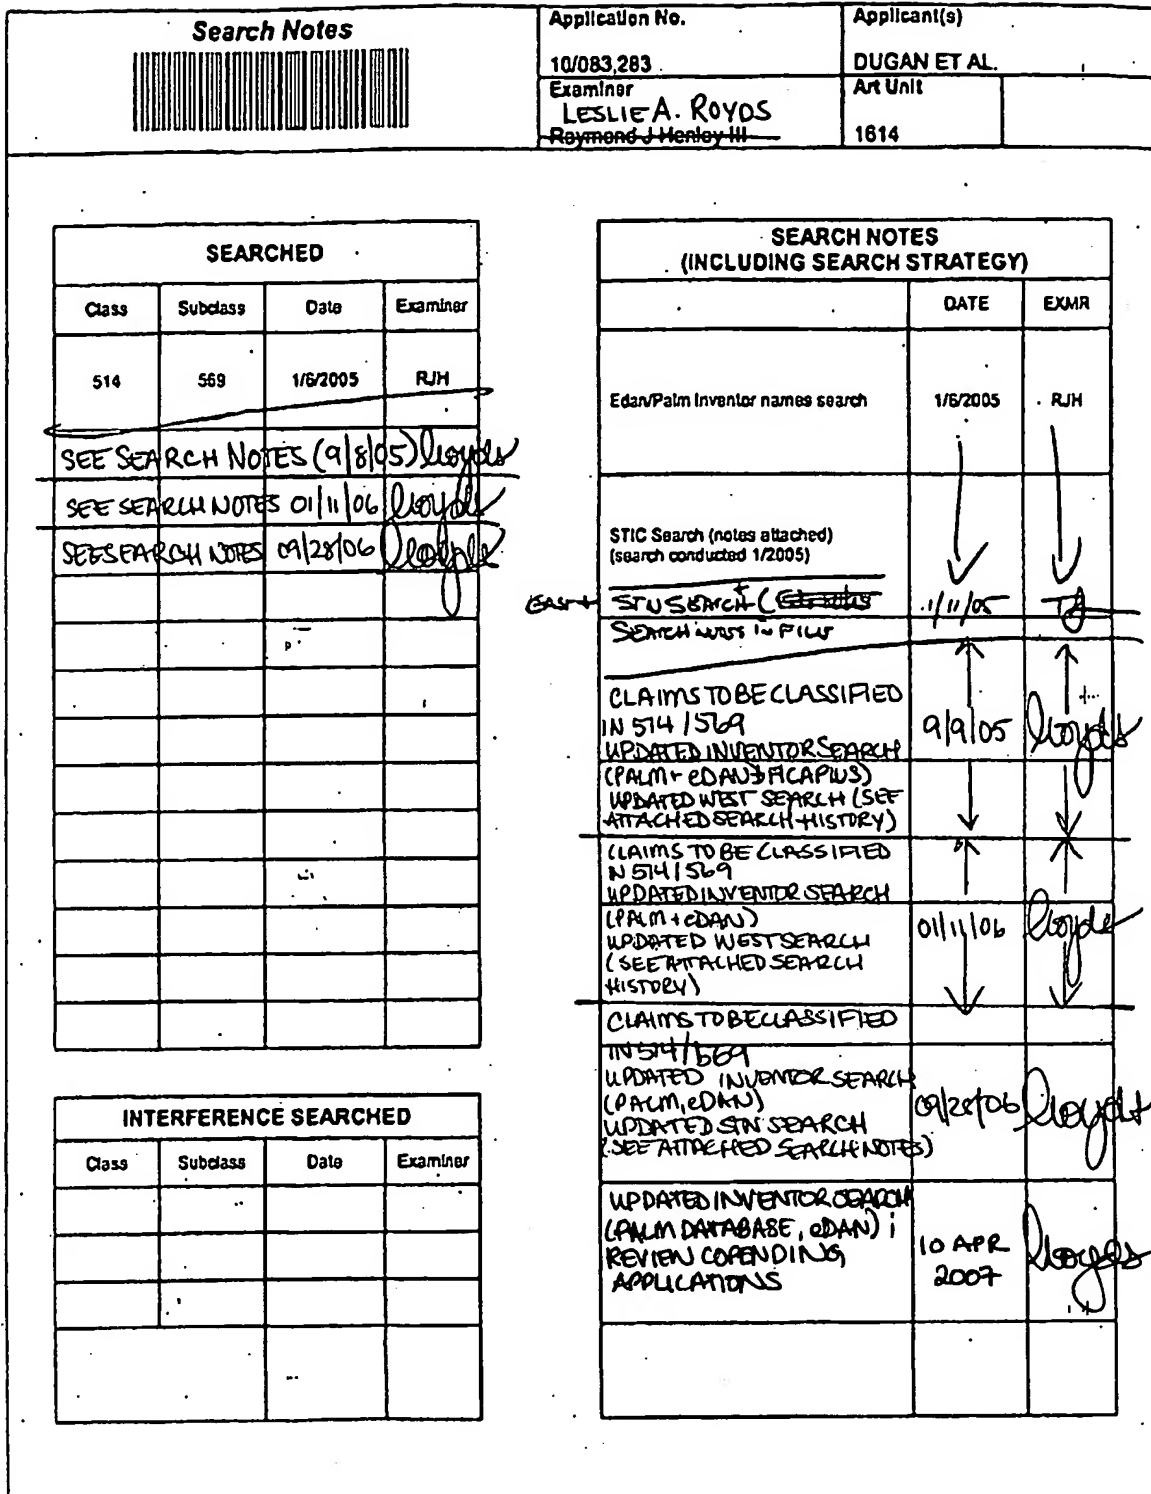 Search Notes
Application No.
10/083,283
Applicant(s)
DUGAN ET AL.
Examiner
LESLIE A. ROYDS
Raymond J Henley III
Art Unit
1614
SEARCHED
Class Subclass Date Examiner
514 569 1/6/2005 RJH
SEE SEARCH NOTES (9/8/05) lroyds
SEE SEARCH NOTES 01/11/06 lroyds
SEE SEARCH NOTES 09/28/06 lroyds
INTERFERENCE SEARCHED
Class Subclass Date Examiner
SEARCH NOTES
(INCLUDING SEARCH STRATEGY)
DATE EXMR
Edan/Palm Inventor names search 1/6/2005 RJH
STIC Search (notes attached)
(search conducted 1/2005)
EAST + STN SEARCH ( 1/11/05
SEARCH NOTES IN FILE
CLAIMS TO BE CLASSIFIED
IN 514/569
UPDATED INVENTOR SEARCH
9/9/05 lroyds
(PALM + eDAN
UPDATED WEST SEARCH (SEE
ATTACHED SEARCH HISTORY)
CLAIMS TO BE CLASSIFIED
IN 514/569
UPDATED INVENTOR SEARCH
(PALM + eDAN)
UPDATED WEST SEARCH
(SEE ATTACHED SEARCH
HISTORY)
01/11/06 lroyds
CLAIMS TO BE CLASSIFIED
IN 514/569
UPDATED INVENTOR SEARCH
(PALM, eDAN)
UPDATED STN SEARCH
(SEE ATTACHED SEARCH NOTES)
09/28/06 lroyds
UPDATED INVENTOR SEARCH
(PALM DATABASE, eDAN);
REVIEW COPENDING
APPLICATIONS
10 APR
2007
lroyds